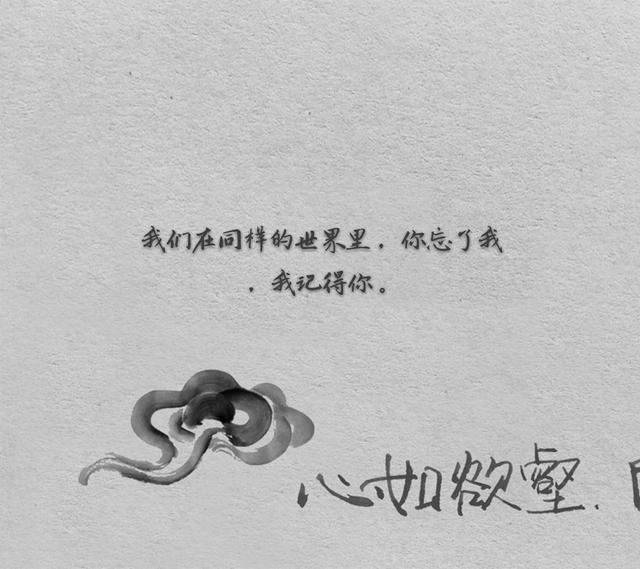 我们在同样的世界里，你忘了我
，我记得你。
心如欲壑.